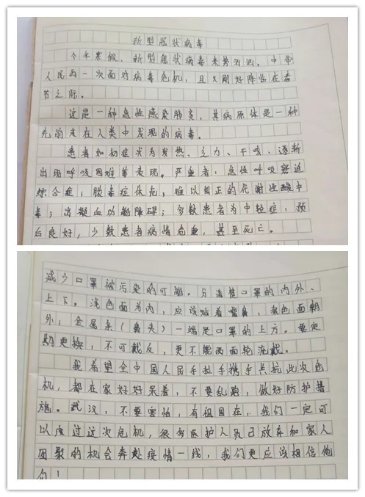 新型冠状病毒
今年寒假，新型冠状病毒来势汹汹。中华
人民再一次面对病毒危机，且又刚好降临在春
节之际。
这是一种急性感染肺炎，其病原体是一种
先前未在人类中发现的病毒。
患者初始症状为发热、乏力、干咳、逐渐
出现呼吸困难等表现。严重者：急性呼吸窘迫
综合症；脓毒症休克；难以纠正的代谢性酸中
毒；出凝血功能障碍；多数患者为中轻症，预
后良好，少数患者病情危重，甚至死亡。
减少口罩被污染的可能。分清楚口罩的内外、
上下。浅色面为内，应该贴着口鼻，深色面朝
外；金属条（鼻夹）一端是口罩的上方。要定
期更换，不可戴反，更不能两面轮流戴。
我希望全中国人民手拉手携手共抗此次危
机，都在家好好呆着，不要乱跑，做好防护措
施。武汉，不要害怕，有祖国在，我们一定可
以度过这次危机，很多医护人员已放弃和家人
团聚的机会奔赴疫情一线，我们更应该相信他
们！